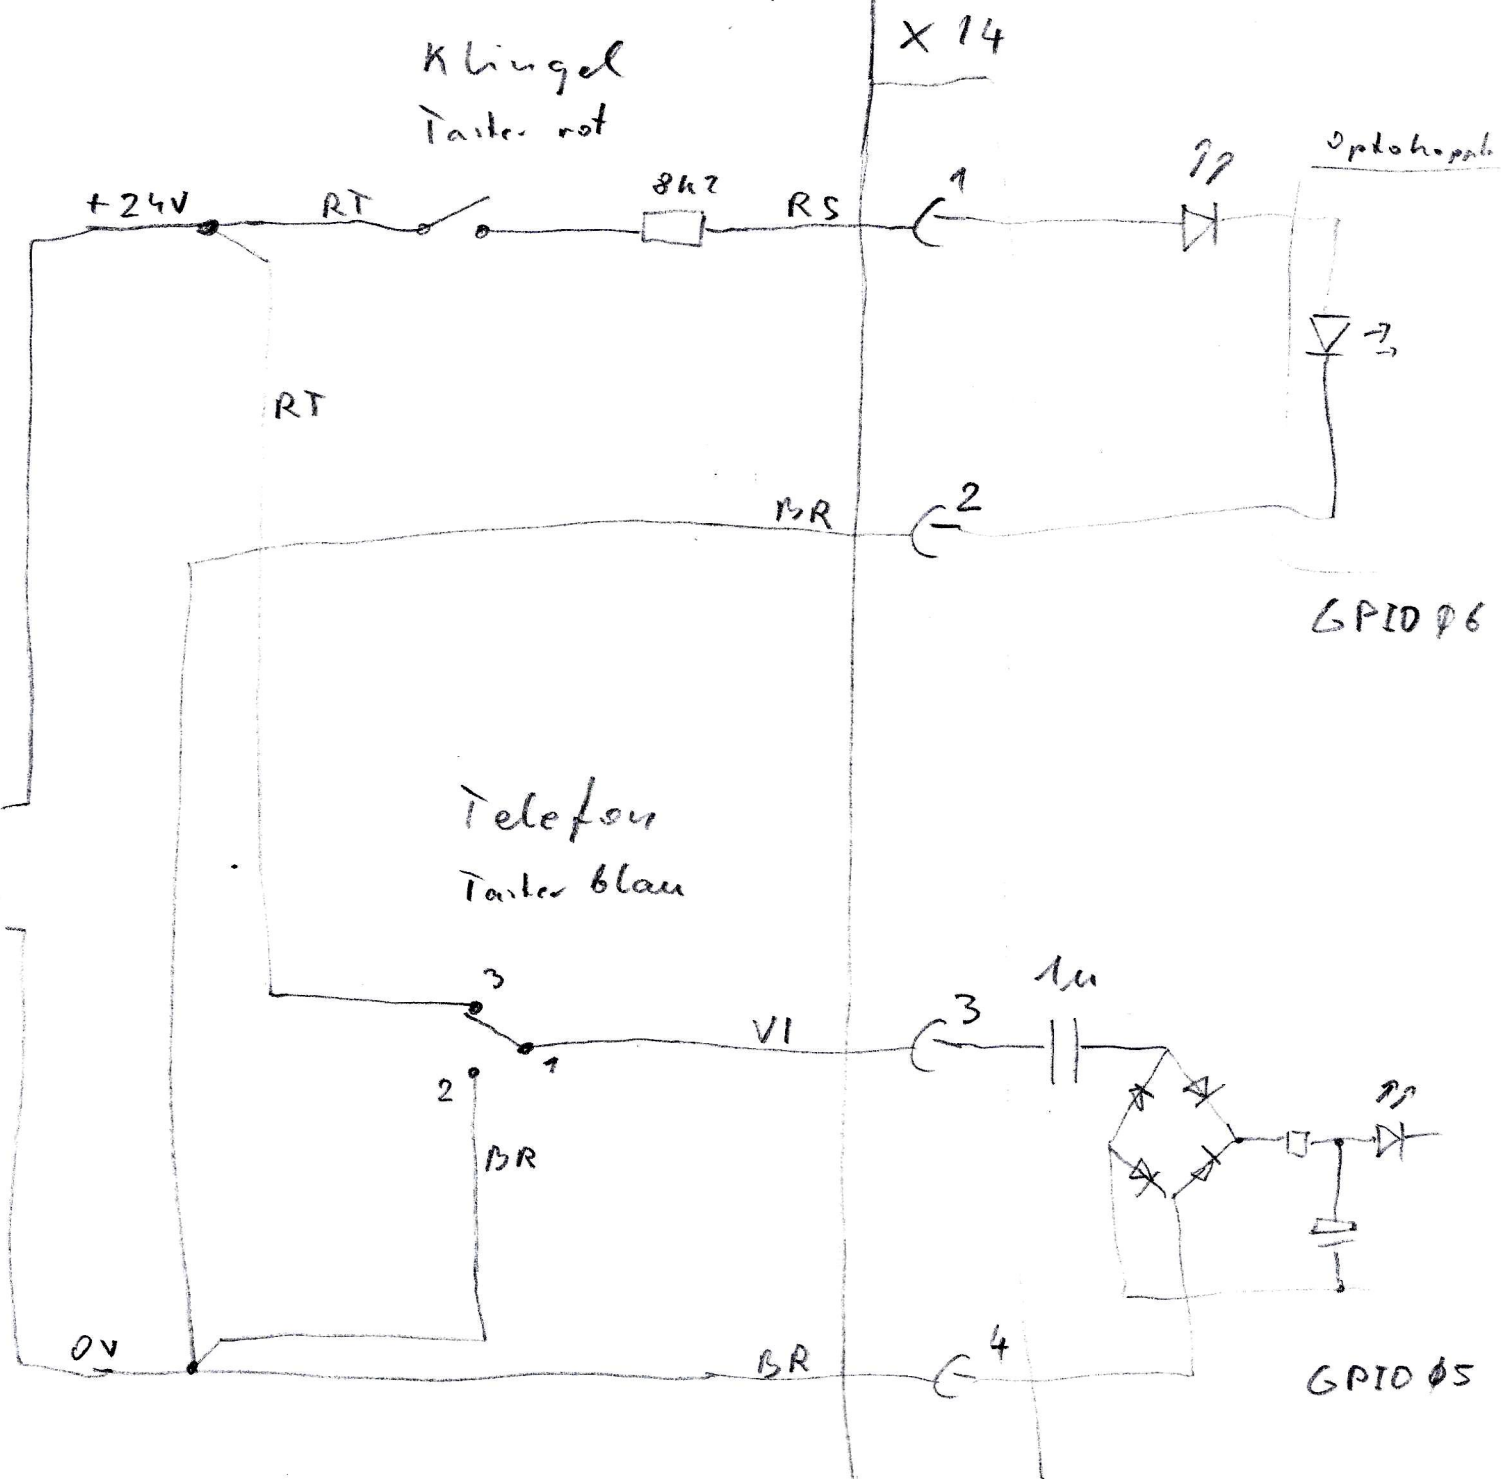 X 14
Klingel
Taster rot
Optokoppl
+24V
RT
8k2
RS
1
RT
BR
2
GPIO 06
Telefon
Taster blau
3
1
2
VI
3
1µ
BR
0V
BR
4
GPIO 05